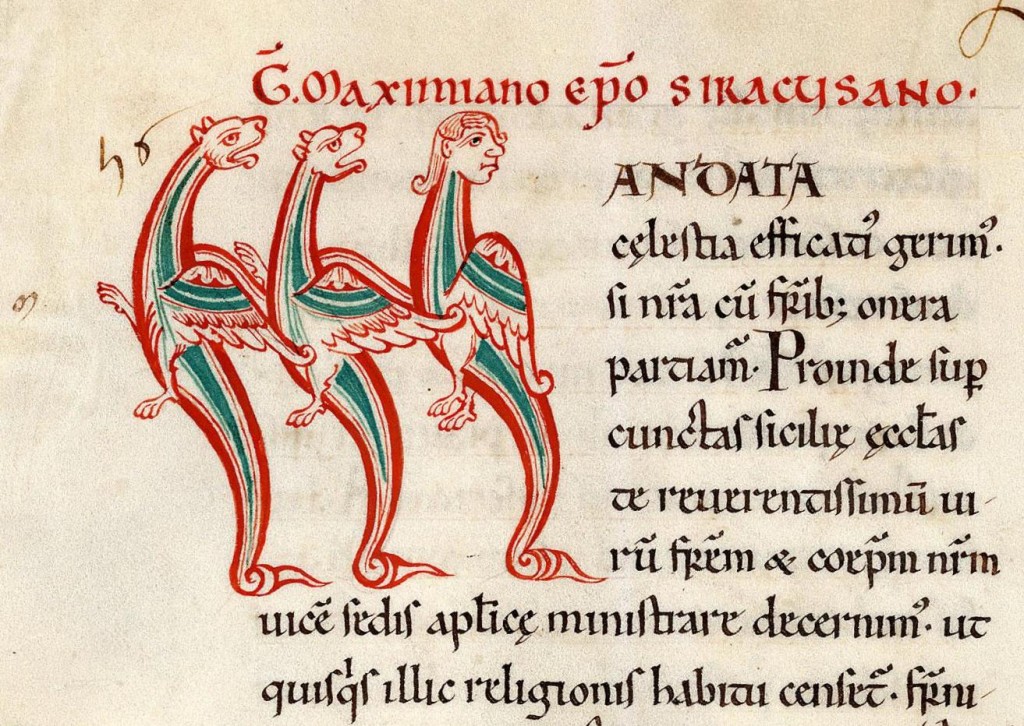 G̅. Maximiano ep̅o siracusano.
MANDATA
cęlestia efficaciꝰ gerimꝰ.
si nr̅a cū fr̅ib; onera
partiam̃. Proinde sup̱
cunctas sicilię ęccl̅as
te reuerentissimū ui-
rū fr̅em & coep̅m nr̅m
uicē sedis apl̅icę ministrare decernimꝰ. ut
quisqͥs illic religionis habitu censet̃. fr̅ni-